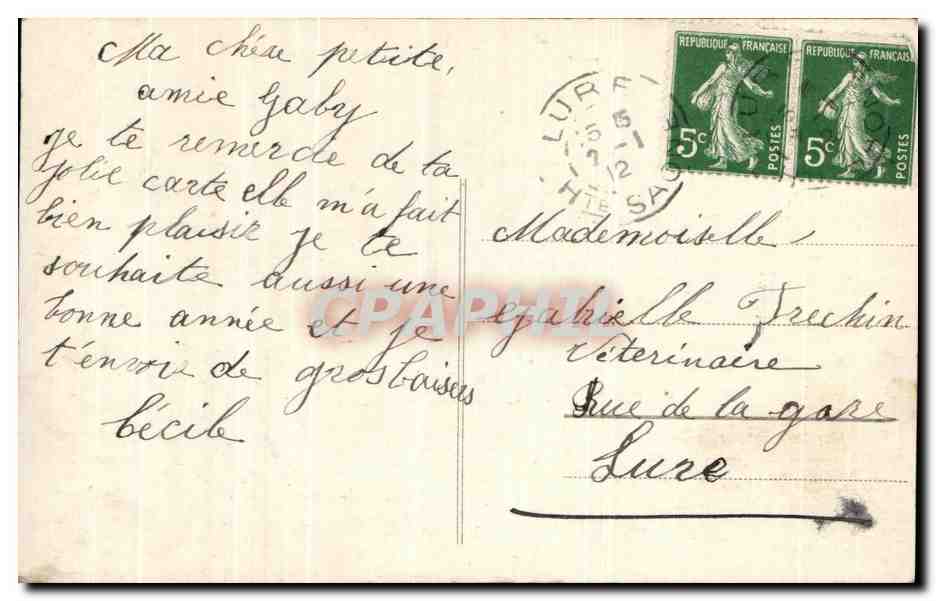 Ma chère petite,
amie Gaby
je te remercie de ta
jolie carte elle m'a fait
bien plaisir je te
souhaite aussi une
bonne année et je
t'envoie de gros baisers
Cécile
REPUBLIQUE FRANÇAISE
5c
POSTES
REPUBLIQUE FRANÇAISE
5c
POSTES
LURE
5 -1
12
HTE SAONE
Mademoiselle
Gabrielle Frechin
Véterinaire
Rue de la gare
Lure
CPAPHIL